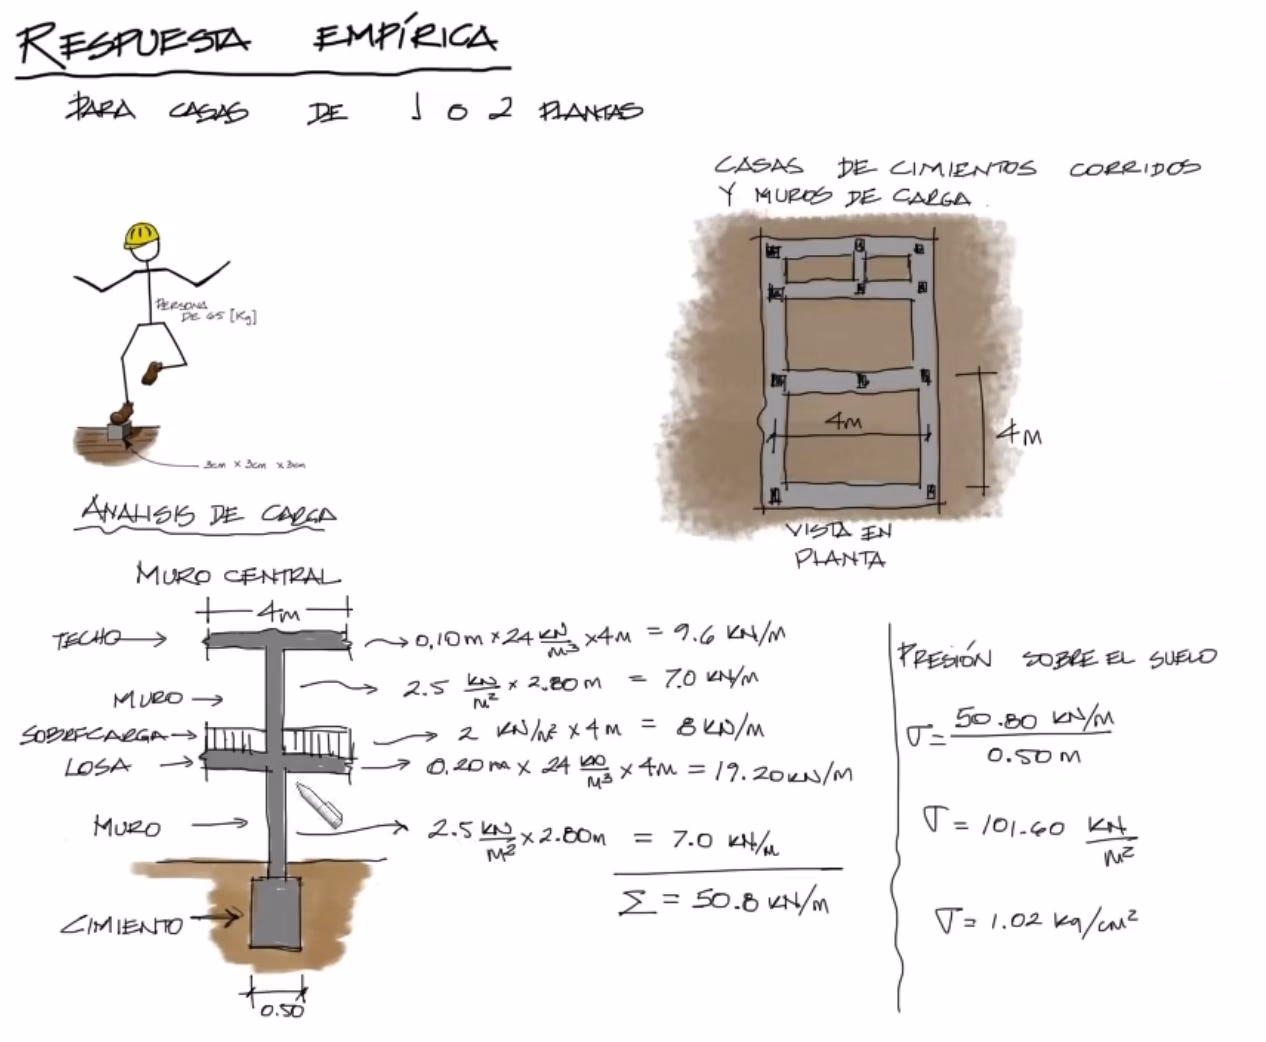 RESPUESTA EMPÍRICA
PARA CASAS DE 1 O 2 PLANTAS
CASAS DE CIMIENTOS CORRIDOS
Y MUROS DE CARGA.
PERSONA
DE 65 [Kg]
3cm x 3cm x 3cm
4m
4m
VISTA EN
PLANTA
ANALISIS DE CARGA
MURO CENTRAL
4m
TECHO → 0.10m x 24 KN/m³ x 4m = 9.6 KN/m
MURO → 2.5 KN/m² x 2.80m = 7.0 KN/m
SOBRECARGA → 2 KN/m² x 4m = 8 KN/m
LOSA → 0.20m x 24 KN/m³ x 4m = 19.20 KN/m
MURO → 2.5 KN/m² x 2.80m = 7.0 KN/m
Σ = 50.8 KN/m
CIMIENTO →
0.50
PRESIÓN SOBRE EL SUELO
σ = 50.80 KN/m / 0.50 m
σ = 101.60 KN/m²
σ = 1.02 Kg/cm²